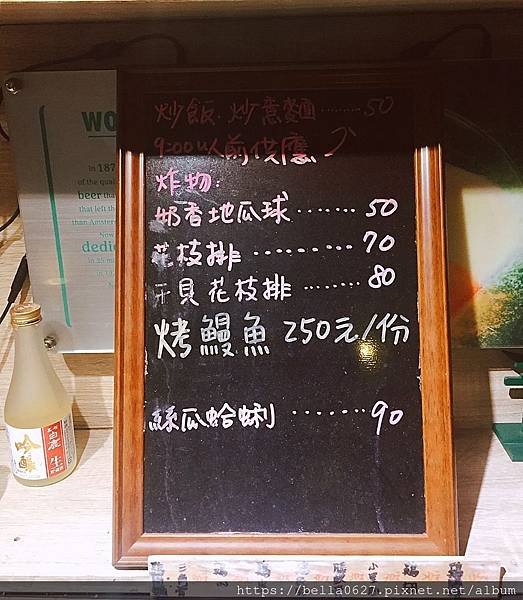 炒飯.炒意麵………50
9:00以前供應
炸物:
奶香地瓜球…….50
花枝排………..70
干貝花枝排……..80
烤鰻魚 250元/份
絲瓜蛤蜊…….90
WO
In 187
of the qua
beer tha
that left th
than Amster
Now
dedic
白鹿
吟釀
生
https://bella0627.pixnet.net/album